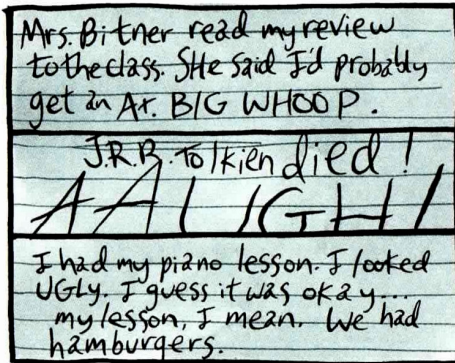 Mrs. Bitner read my review
to the class. SHe said I'd probably
get an A+. BIG WHOOP.
J.R.R. Tolkien died!
AAUGH!
I had my piano lesson. I looked
UGLY. I guess it was okay...
my lesson, I mean. We had
hamburgers.